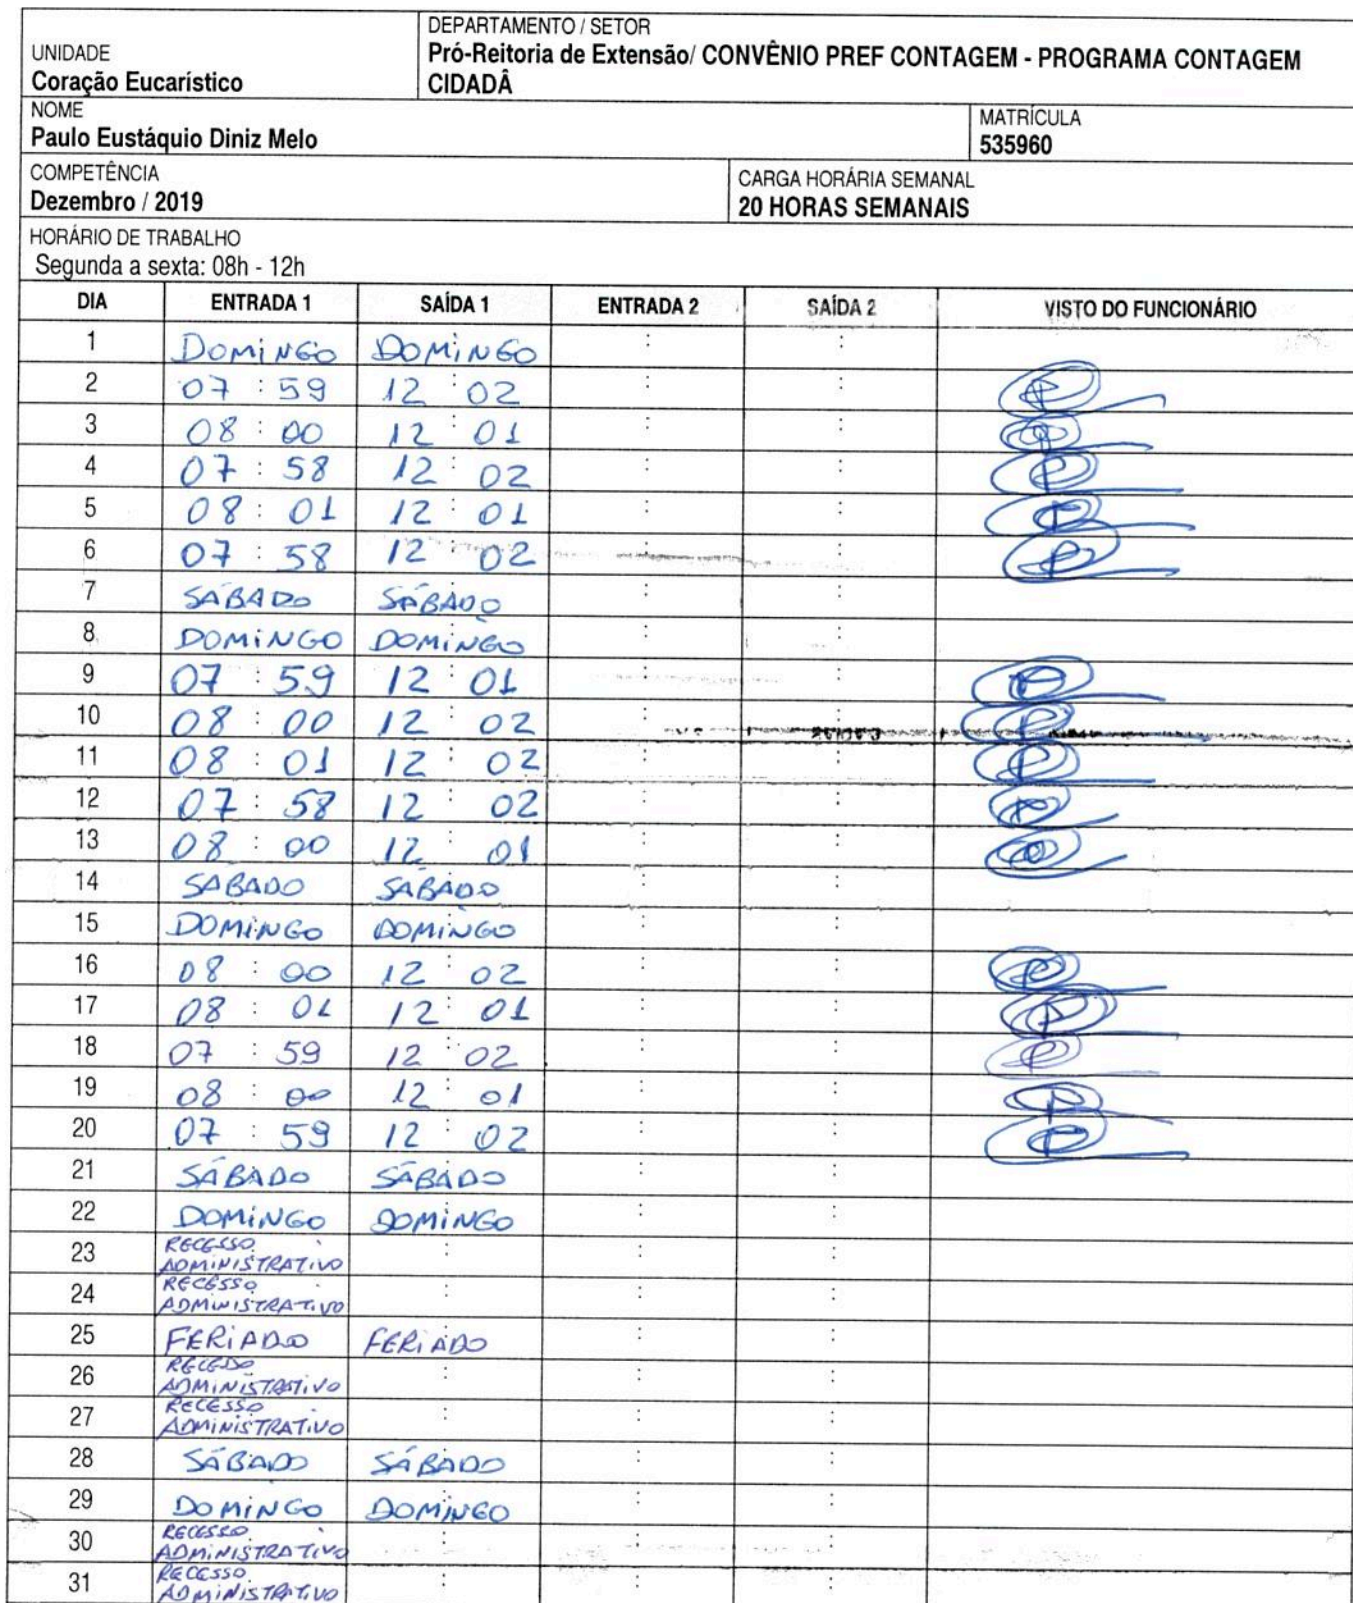 UNIDADE
Coração Eucarístico
DEPARTAMENTO / SETOR
Pró-Reitoria de Extensão/ CONVÊNIO PREF CONTAGEM - PROGRAMA CONTAGEM
CIDADÃ
NOME
Paulo Eustáquio Diniz Melo
MATRÍCULA
535960
COMPETÊNCIA
Dezembro / 2019
CARGA HORÁRIA SEMANAL
20 HORAS SEMANAIS
HORÁRIO DE TRABALHO
Segunda a sexta: 08h - 12h
DIA ENTRADA 1 SAÍDA 1 ENTRADA 2 SAÍDA 2 VISTO DO FUNCIONÁRIO
1 DOMINGO DOMINGO : :
2 07 : 59 12 : 02 : :
3 08 : 00 12 : 01 : :
4 07 : 58 12 : 02 : :
5 08 : 01 12 : 01 : :
6 07 : 58 12 : 02 : :
7 SÁBADO SÁBADO : :
8 DOMINGO DOMINGO : :
9 07 : 59 12 : 01 : :
10 08 : 00 12 : 02 : :
11 08 : 01 12 : 02 : :
12 07 : 58 12 : 02 : :
13 08 : 00 12 : 01 : :
14 SÁBADO SÁBADO : :
15 DOMINGO DOMINGO : :
16 08 : 00 12 : 02 : :
17 08 : 01 12 : 01 : :
18 07 : 59 12 : 02 : :
19 08 : 00 12 : 01 : :
20 07 : 59 12 : 02 : :
21 SÁBADO SÁBADO : :
22 DOMINGO DOMINGO : :
23 RECESSO ADMINISTRATIVO : : :
24 RECESSO ADMINISTRATIVO : : :
25 FERIADO FERIADO : :
26 RECESSO ADMINISTRATIVO : : :
27 RECESSO ADMINISTRATIVO : : :
28 SÁBADO SÁBADO : :
29 DOMINGO DOMINGO : :
30 RECESSO ADMINISTRATIVO : : :
31 RECESSO ADMINISTRATIVO : : :